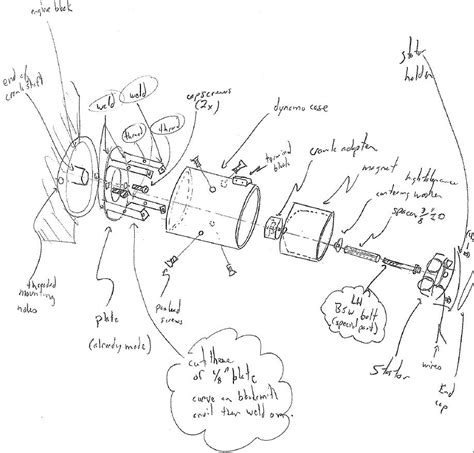 engine block
end of
crankshaft
weld
weld
thread
thread
capscrews
(2x)
dynamo case
terminal
block
crank adapter
magnet
high tolerance
centering washer
spacer 3/8"-20
stator
holder
threaded
mounting
holes
plate
(already made)
peaked
screws
cut these
of 1/8" plate
curve on blacksmith
anvil then weld on.
LH
BSW bolt
(special part)
Stator
wires
End
cap